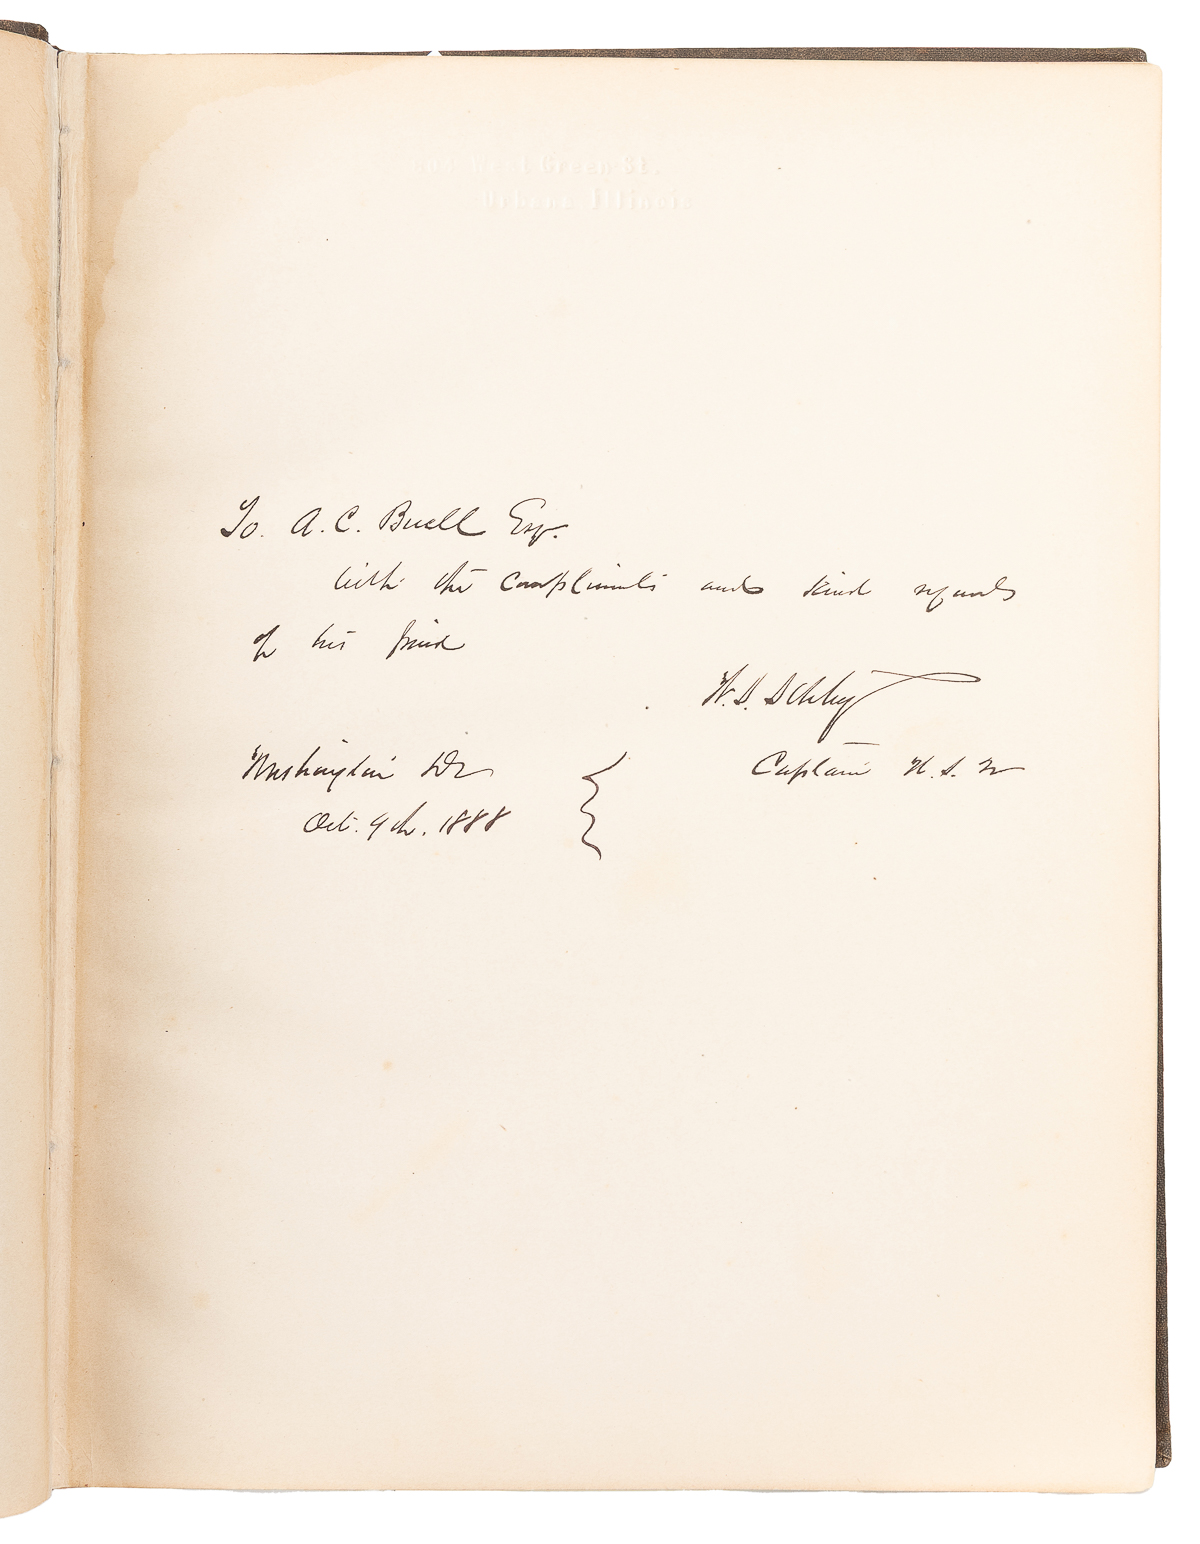 West Green St.
Urbana Illinois
To. A. C. Buell Esq.
with the compliments and kind regards
of his friend
W. S. Schley
Captain U. S. N
Washington DC
Oct. 9th. 1888